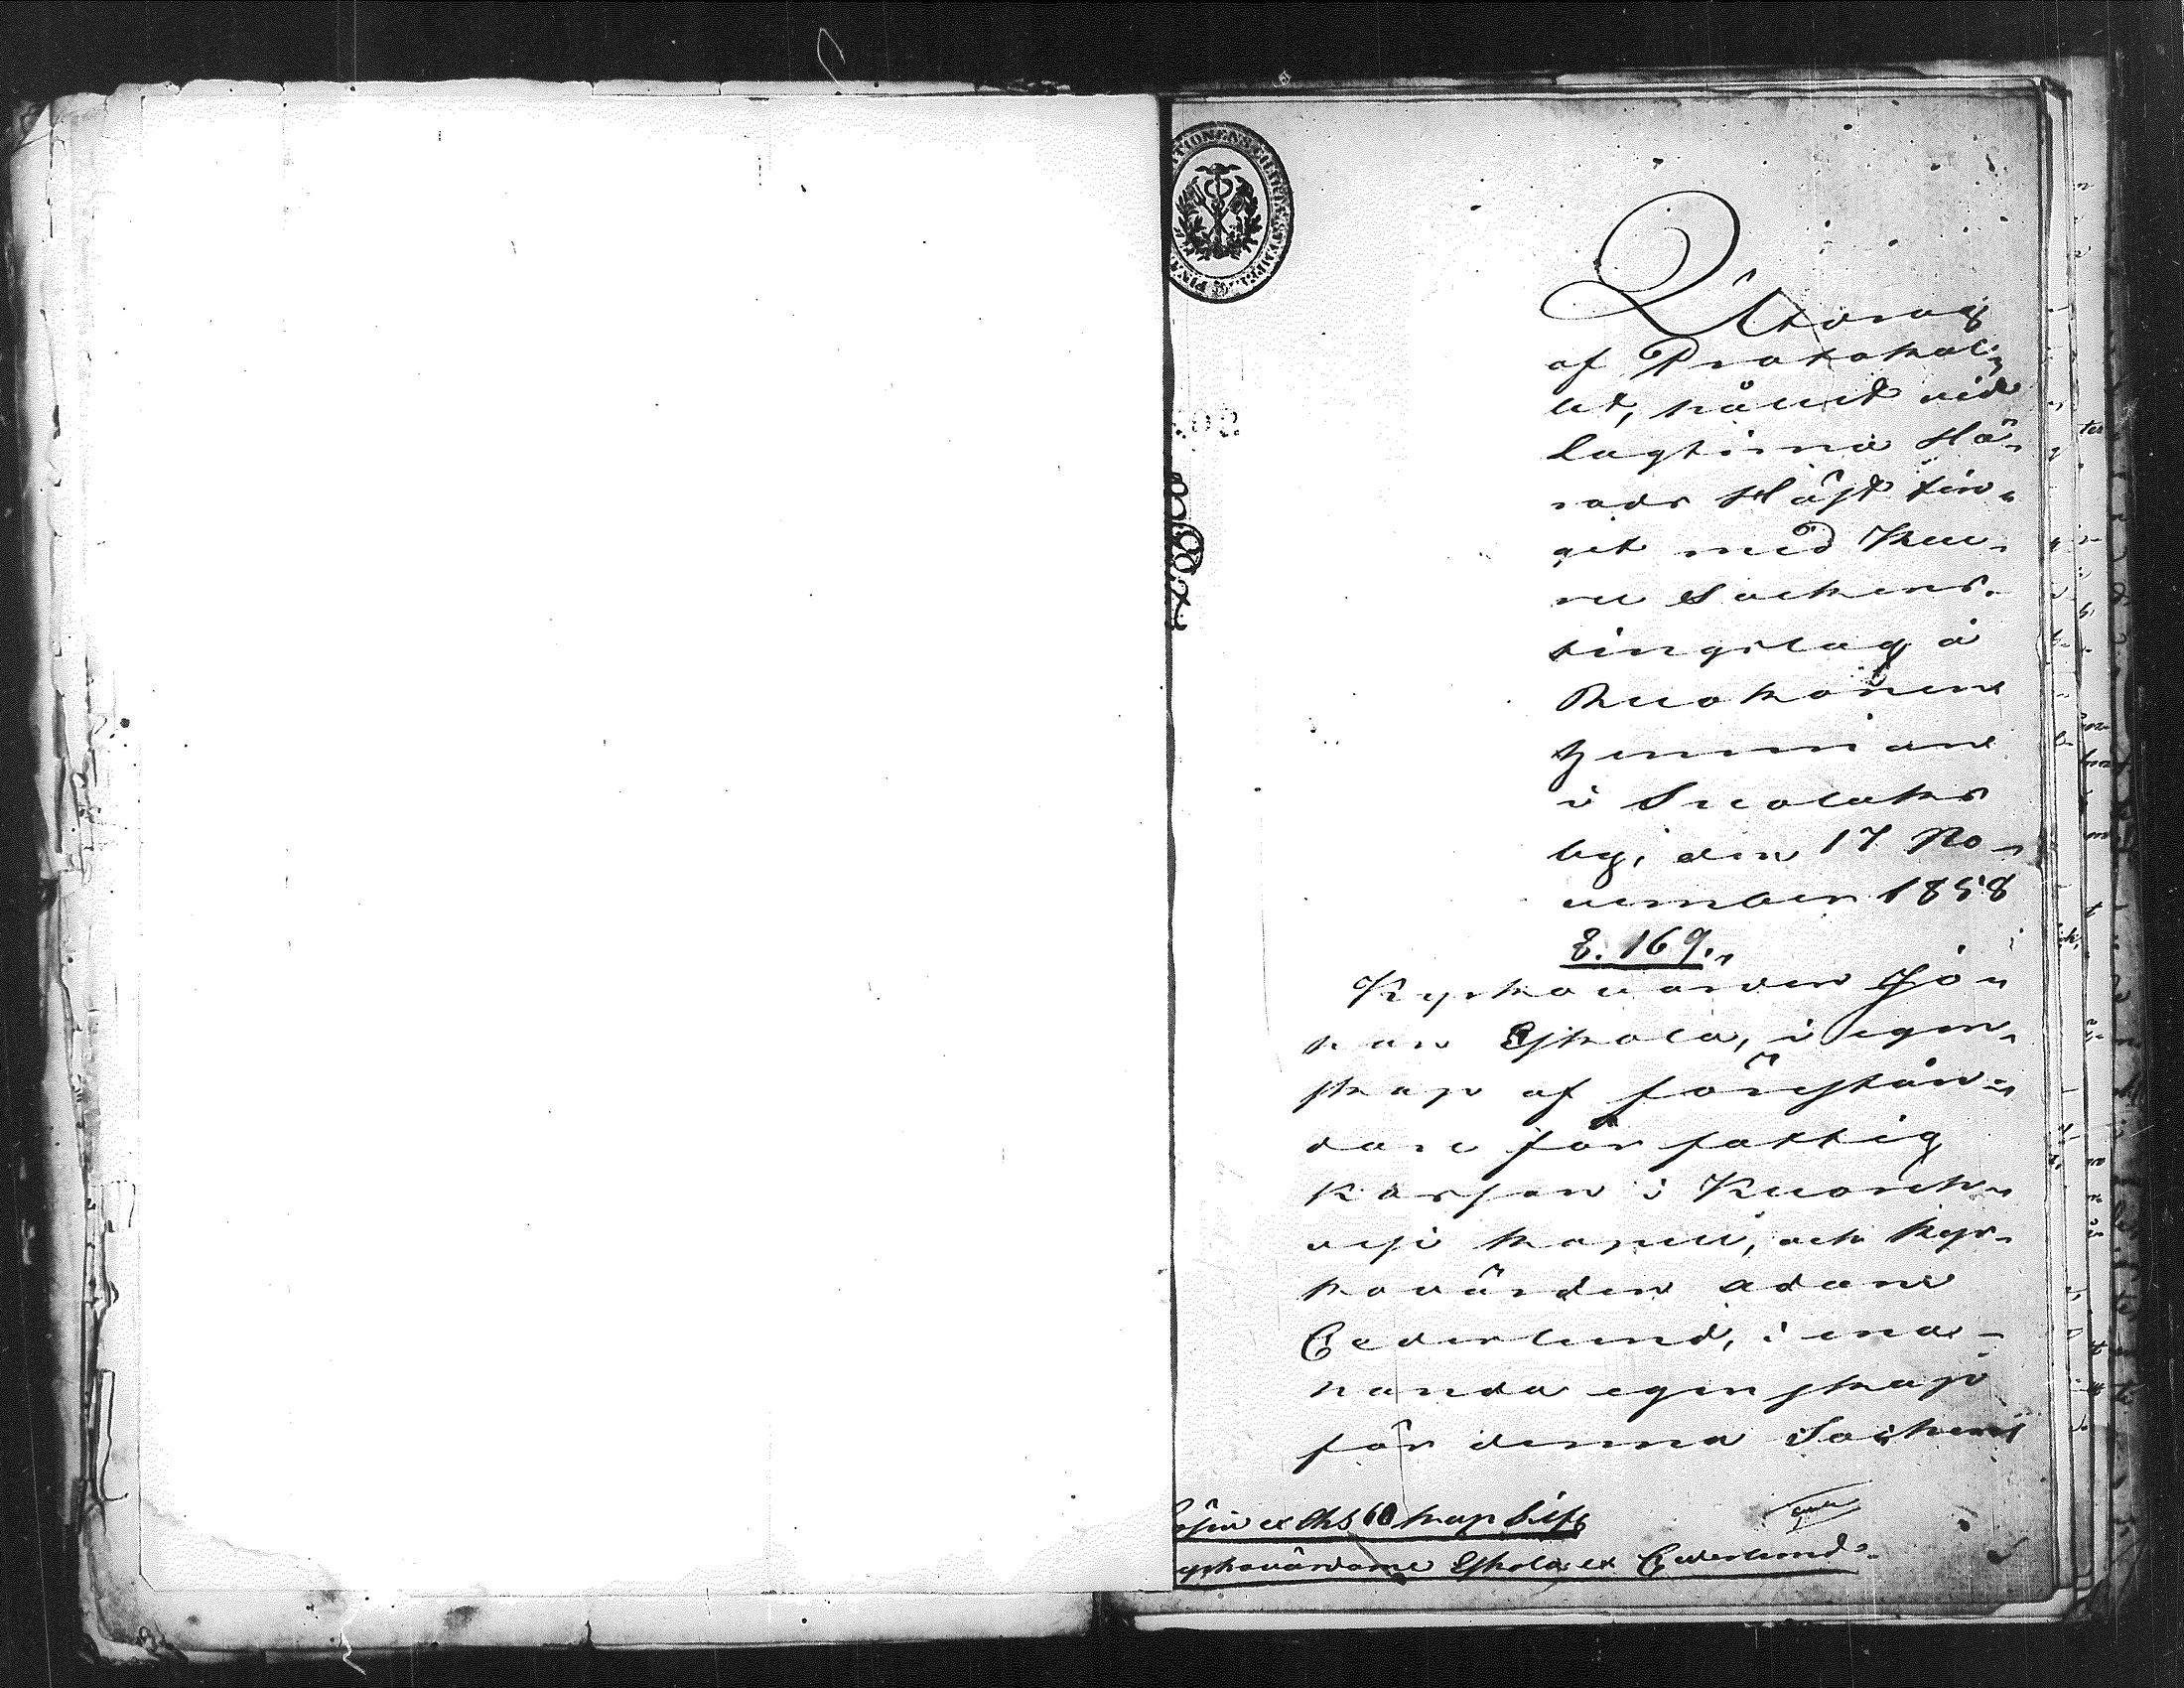 Utdrag
af Protokol-
let, hållit vid
Lagtima Hä-
rads Höst tin-
get med Kuu-
ru Sockens
tingslag å
Ruokonen
hemman
i Suolahs
by, den 17 No-
vember 1858
§. 169.
Kyrkovärden Jo-
han Eskola, i egen-
skap af förestån-
dare för fattig
kassan i Kuoreh-
vesi kapell, och Kyr-
kovärden Adam
Cederlund, i ena-
handa egenskap
för denna Sockens
kyrkovärdarne Eskola et Cederlund